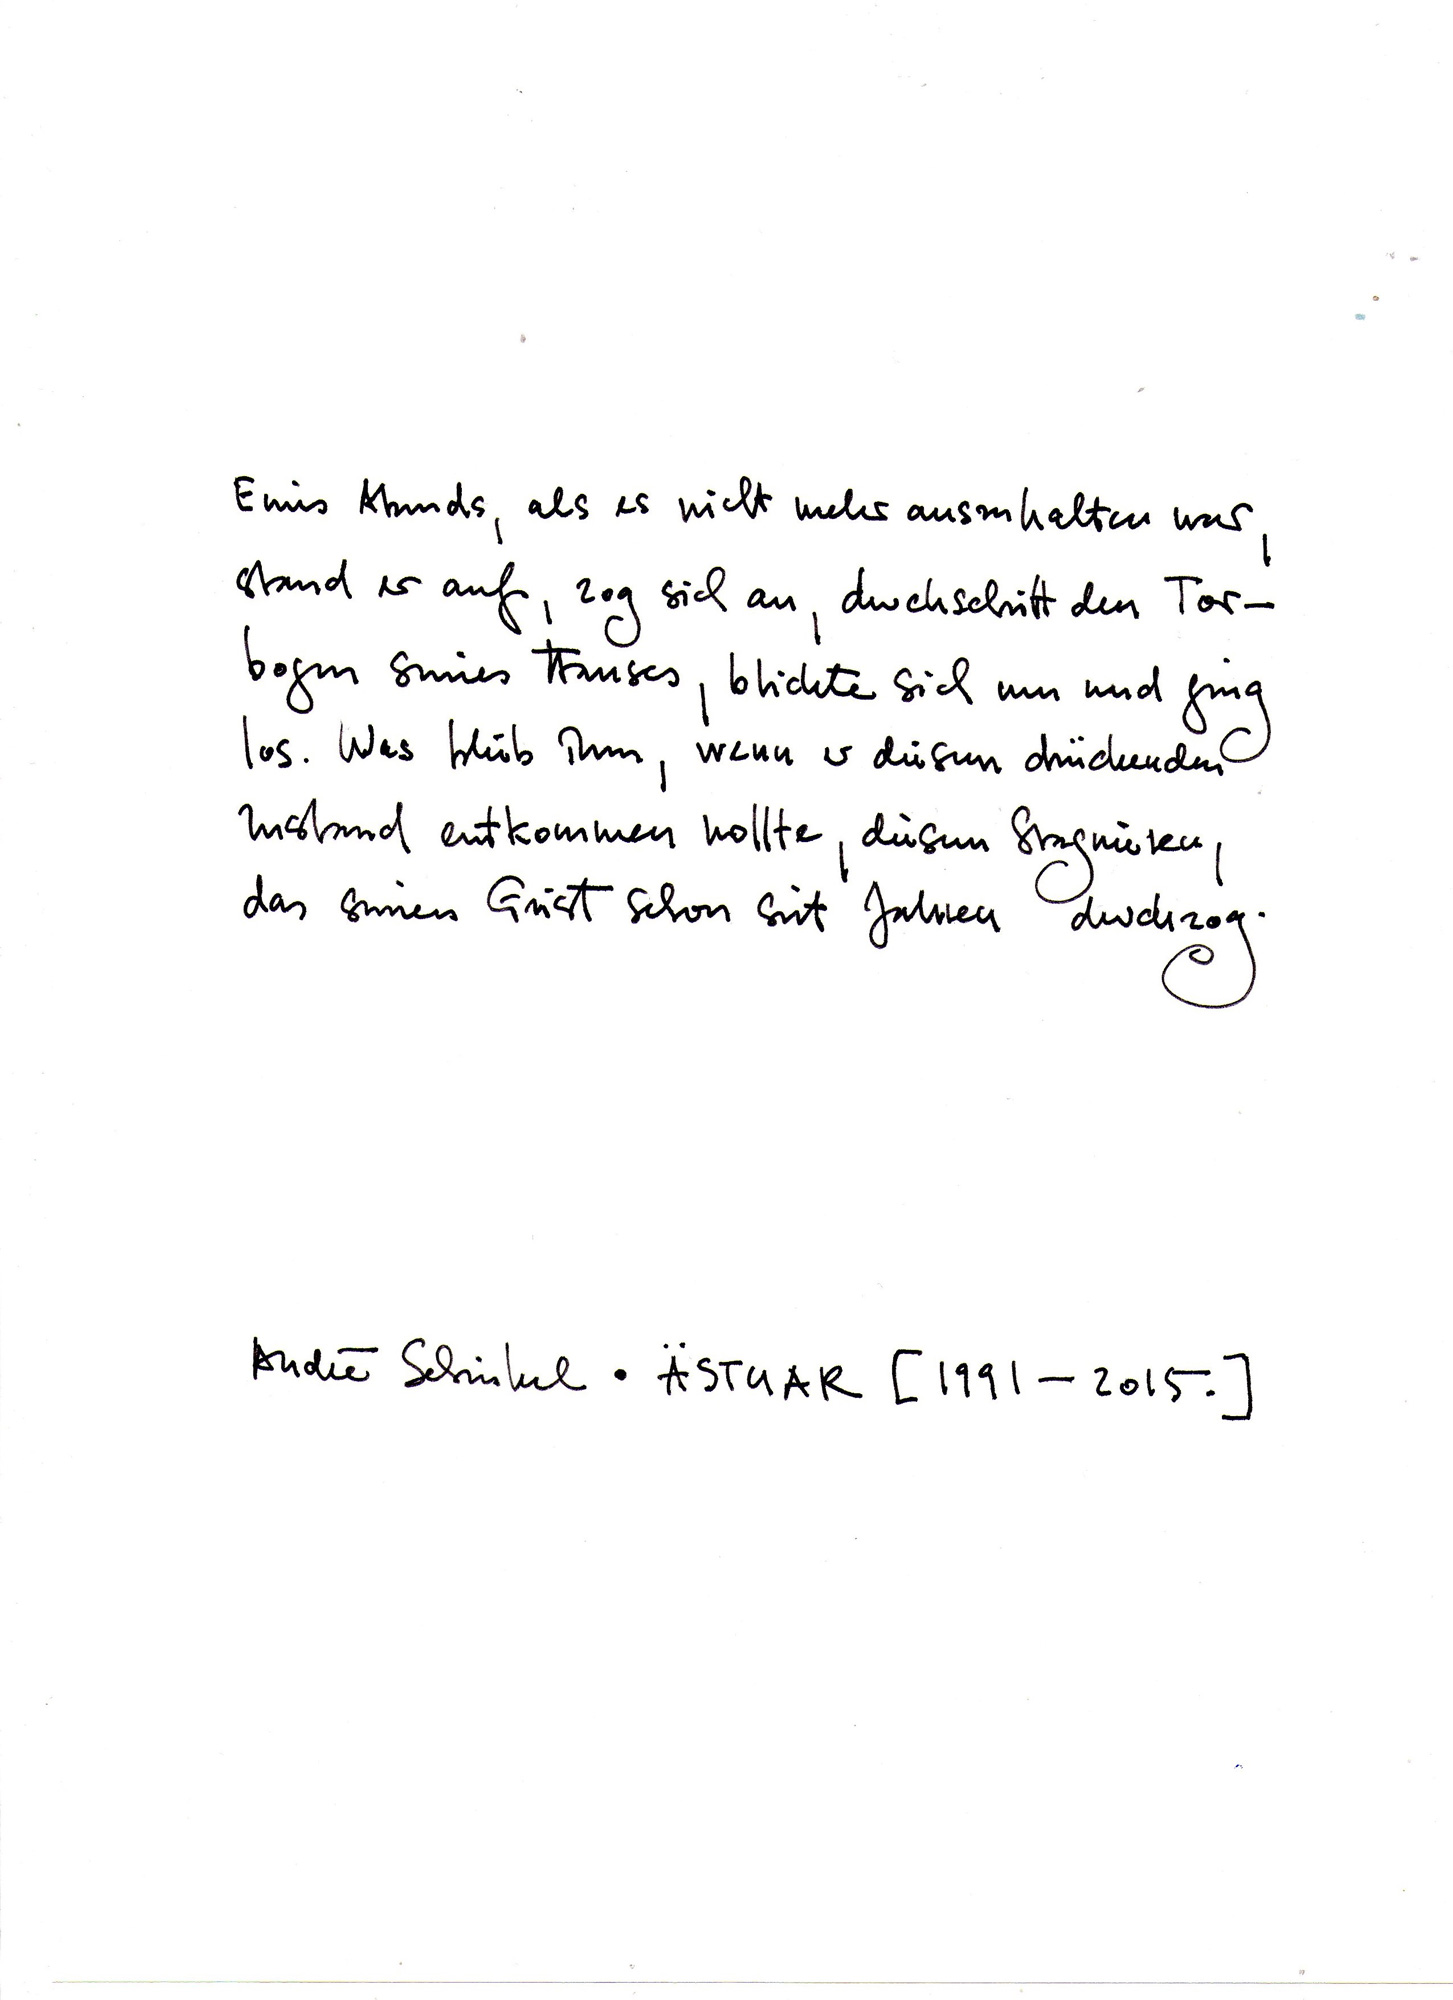 Eines Abends, als es nicht mehr auszuhalten war,
stand er auf, zog sich an, durchschritt den Tor-
bogen seines Hauses, blickte sich um und ging
los. Was blieb ihm, wenn er diesem drückenden
Zustand entkommen wollte, diesem Stagnieren,
das seinen Geist schon seit Jahren durchzog.
André Schinkel • ÄSTUAR [1991–2015.]